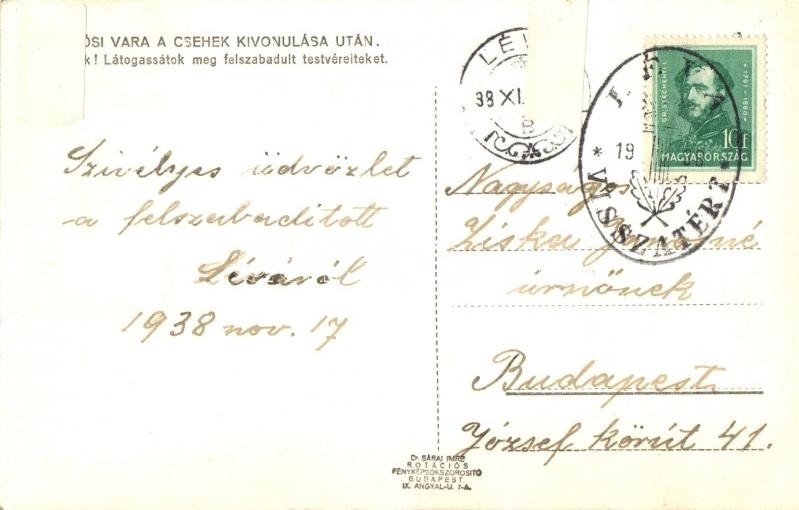 ŐSI VARA A CSEHEK KIVONULÁSA UTÁN.
k! Látogassátok meg felszabadult testvéreiteket.
LÉV
38 XI.
B
LÉVA
19
* VISSZATÉRT *
GR. SZÉCHENYI I.
* 1791-1860 *
10f
MAGYARORSZÁG
Szivélyes üdvözlet
a felszabadított
Léváról
1938 nov. 17
Nagyságos
Ziska
úrnőnek
Budapest.
József körút 41.
Dr. SÁRAI IMRE
ROTÁCIÓS
FÉNYKÉPSOKSZOROSITÓ
BUDAPEST,
IX. ANGYAL-U. 7-A.